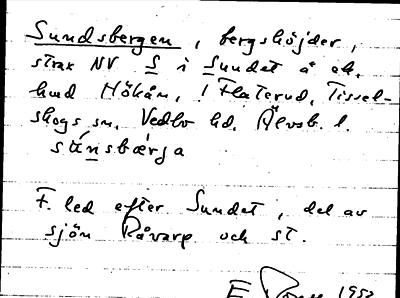 Sundsbergen, bergshöjder,
strax NV S i Sundet å ek.
Höhån, ! Flaterud, Tissel-
skogs sn. Vedbo hd. Älvsb. l.
súnsbærja
F. led efter Sundet, del av
sjön Råvarp och st.
E. 1952